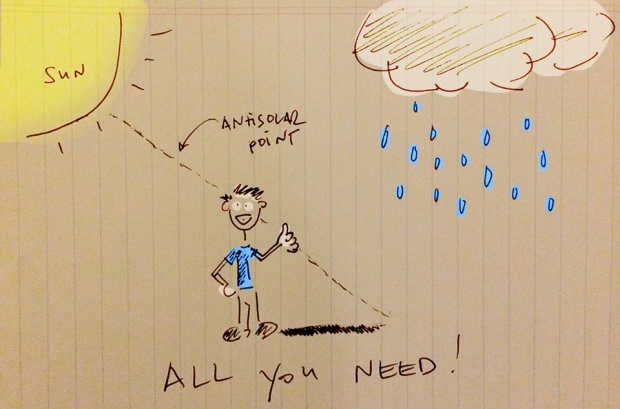 SUN
ANTISOLAR
POINT
ALL YOU NEED!